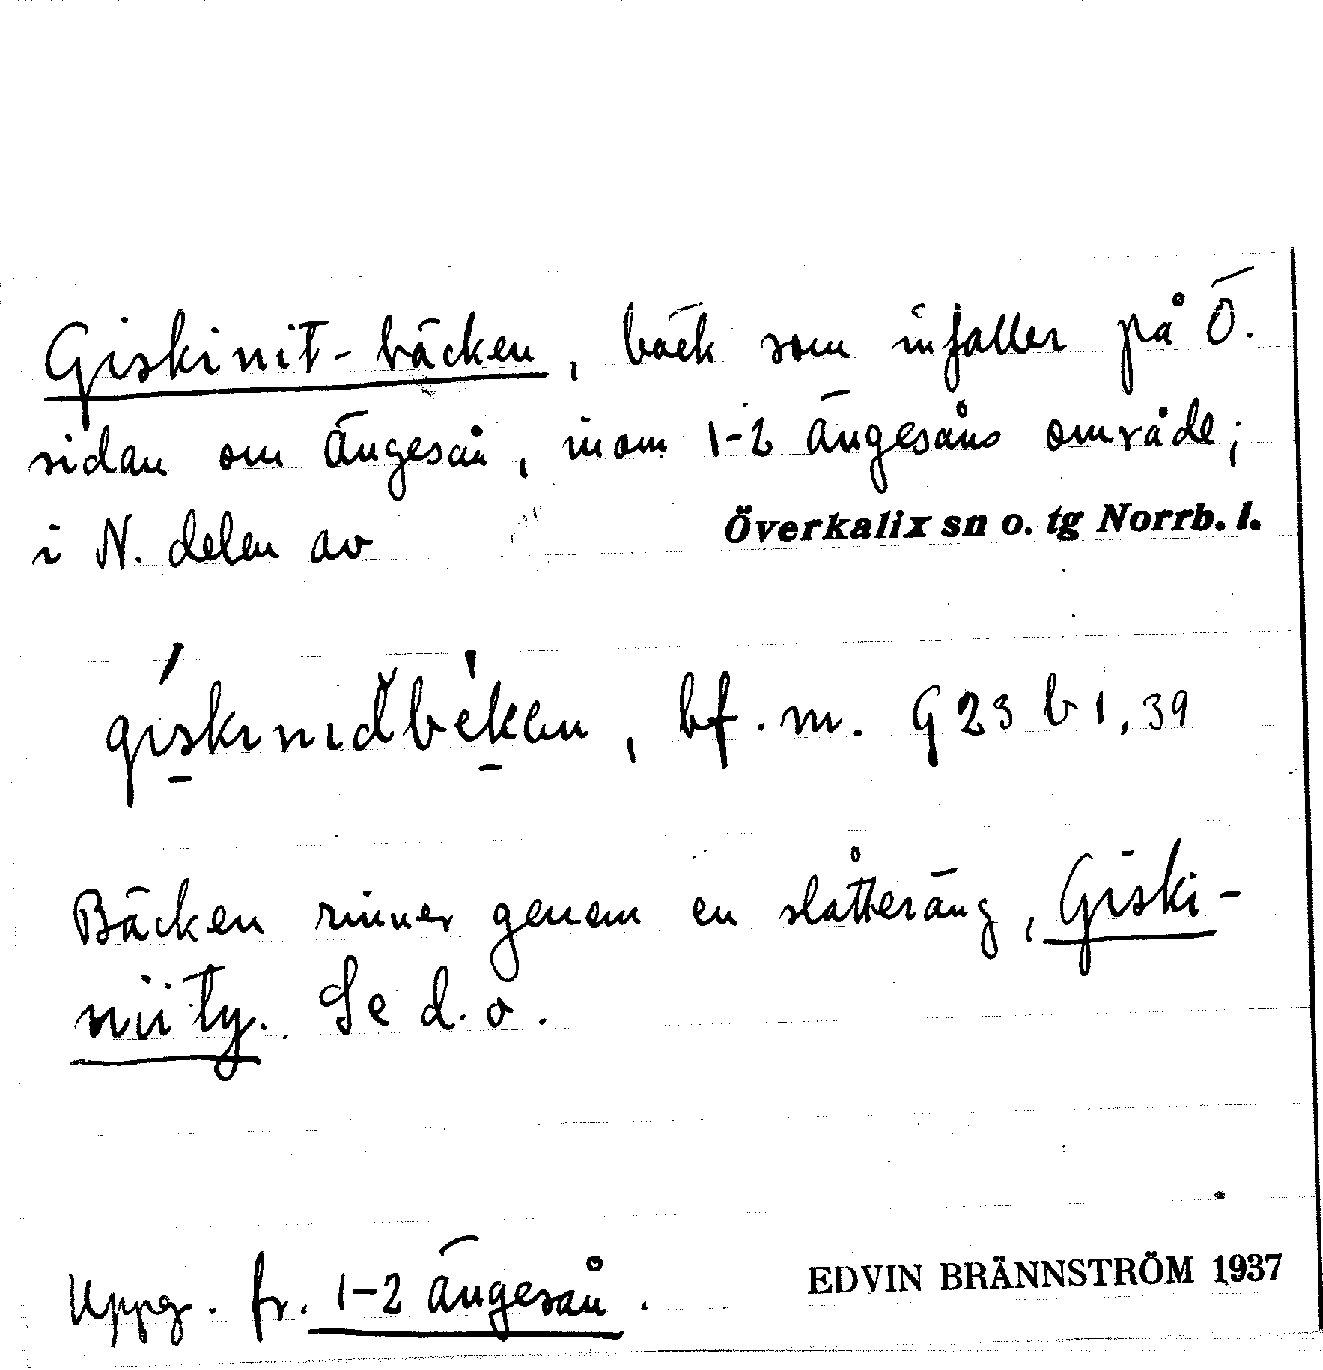 Giskinit-bäcken, bäck som infaller på Ö.
sidan om Ängesån, inom 1-2 Ängesåns område;
i N. delen av Överkalix sn o. tg Norrb. l.
gi̱skinidbe̱kken, bf. m. G 23 b 1, 39
Bäcken rinner genom en slåtteräng, Giski-
niity. Se d. o.
Uppg. fr. 1-2 Ängesån. EDVIN BRÄNNSTRÖM 1937